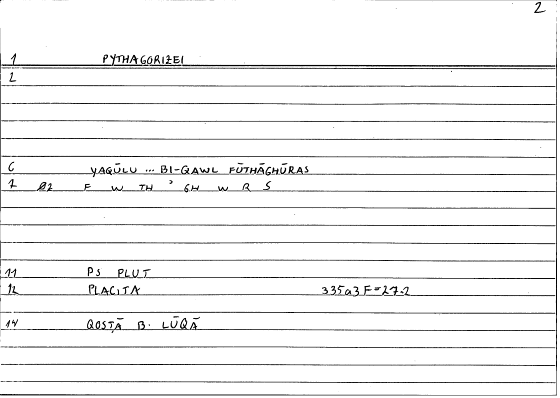 2
1 PYTHAGORIZEI
2
6 YAQŪLU ... BI-QAWL FŪTHĀGHŪRAS
7 02 F W TH ʾ GH W R S
11 PS PLUT
12 PLACITA 335a3F=27.2
14 QOSṬĀ B. LŪQĀ